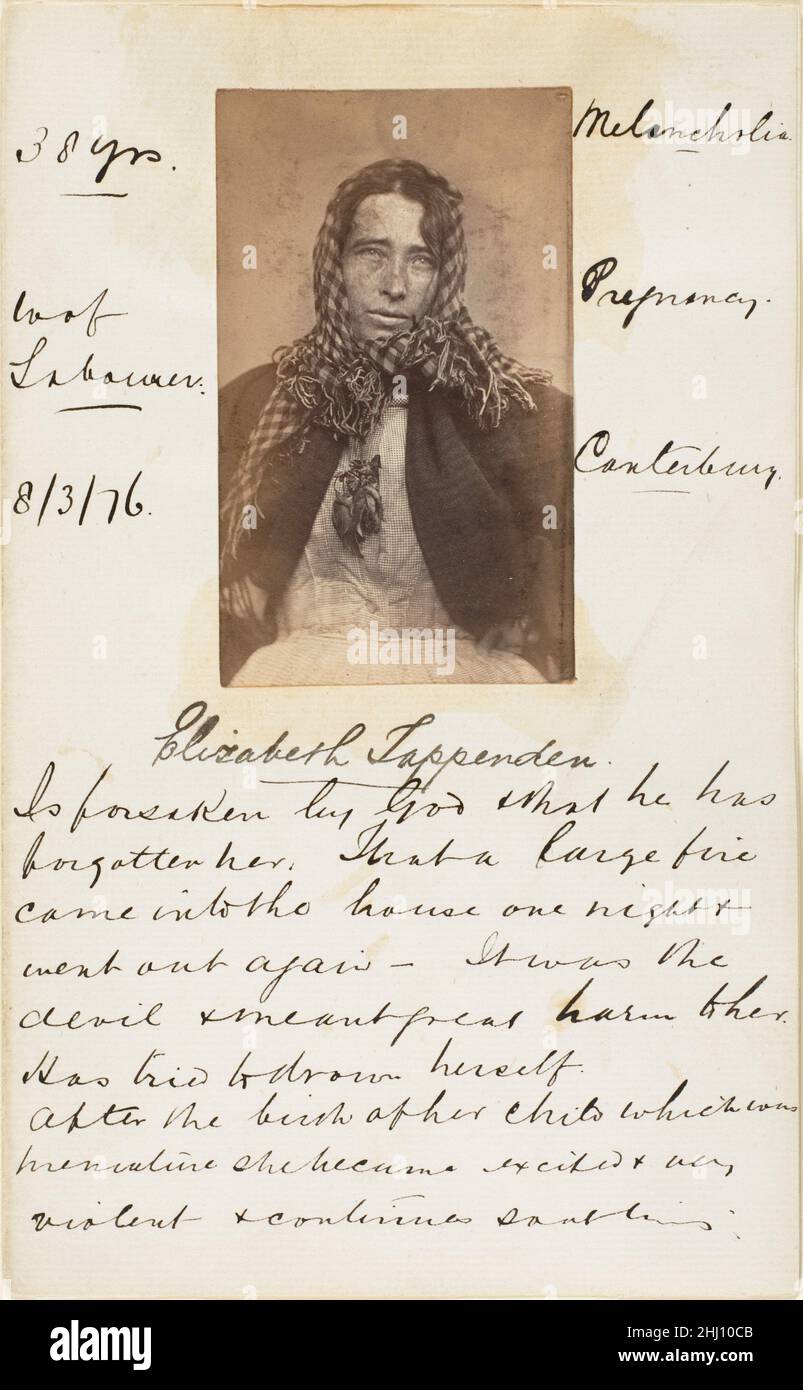 38 yrs.
Melancholia.
w of
Labourer.
Pregnancy.
8/3/76.
Canterbury.
Elizabeth Tappenden.
Is forsaken by God & that he has
forgotten her. That a large fire
came into the house one night &
went out again – It was the
devil & meant great harm to her.
Has tried to drown herself.
After the birth of her child which was
premature she became excited & very
violent & continues
alamy
Image ID: 2HJ10CB
www.alamy.com